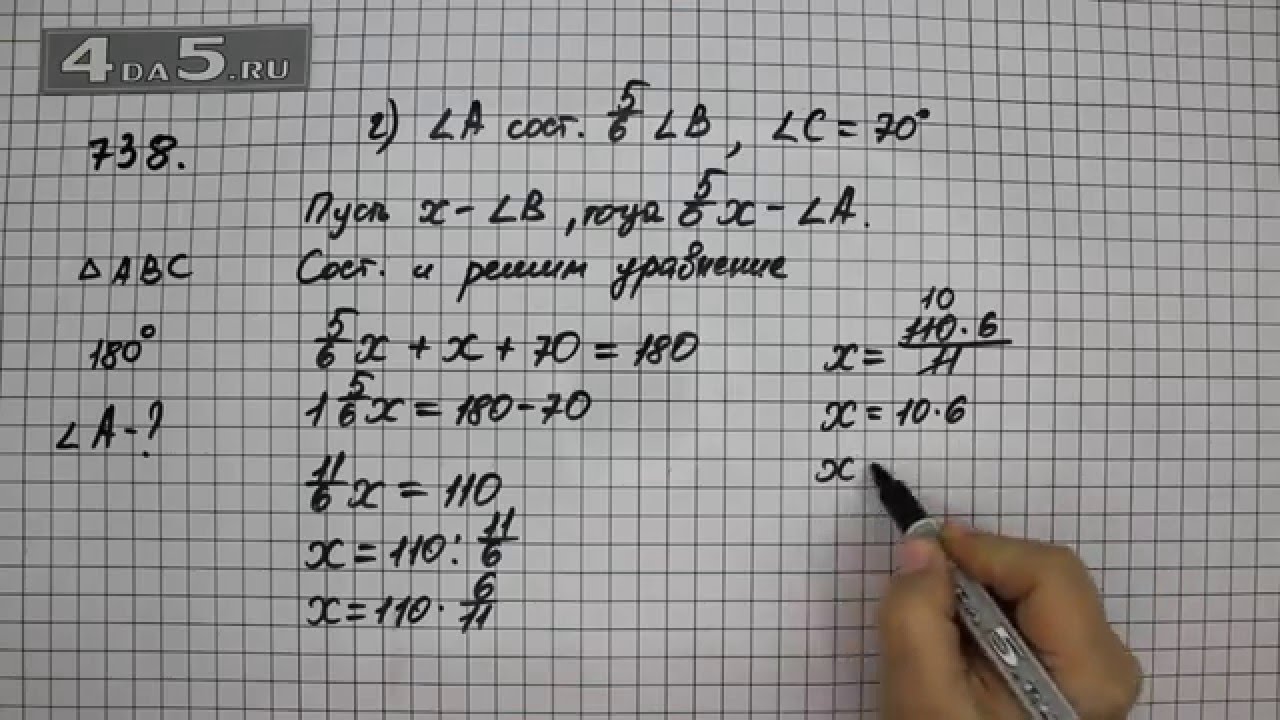 4DA5.RU
738.
г) ∠A сост. 5/6 ∠B, ∠C = 70°
Пусть x - ∠B, тогда 5/6 x - ∠A.
Сост. и решим уравнение
△ABC
180°
∠A - ?
5/6 x + x + 70 = 180
1 5/6 x = 180 - 70
11/6 x = 110
x = 110 : 11/6
x = 110 · 6/11
10
x = 110·6/11
x = 10·6
x